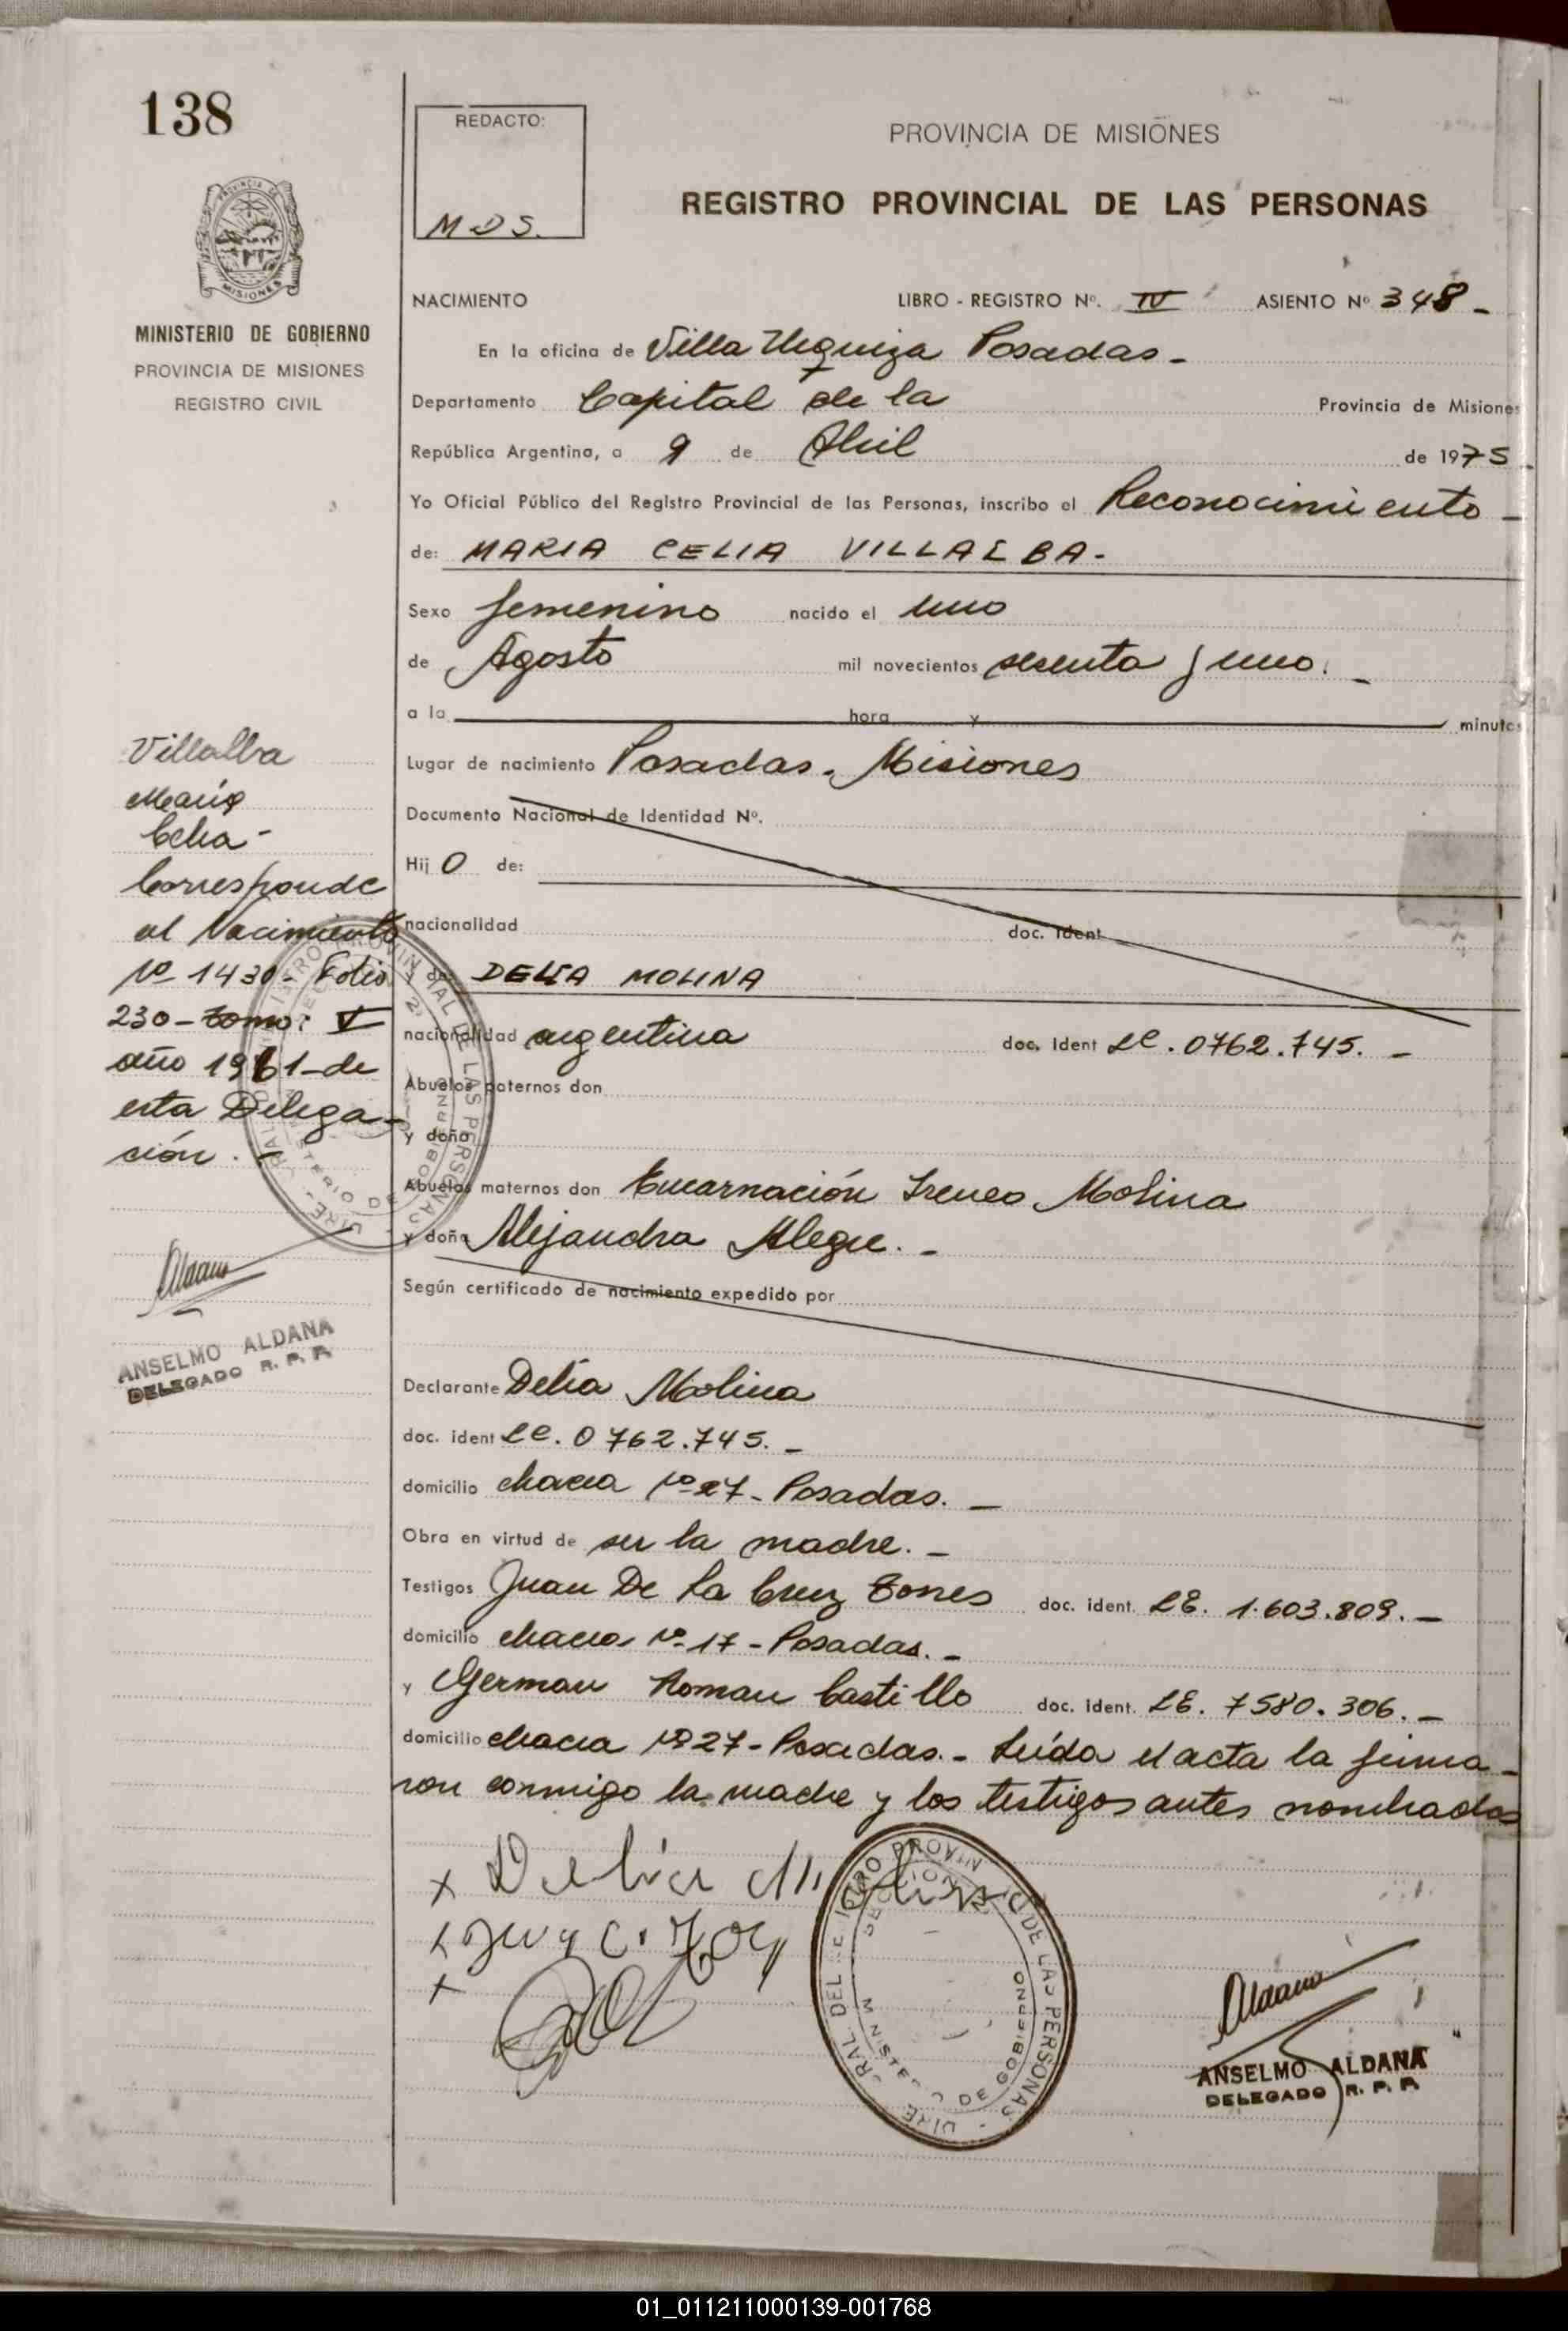 138
REDACTO:
M D S.
PROVINCIA DE MISIONES
REGISTRO PROVINCIAL DE LAS PERSONAS
PROVINCIA DE
MISIONES
MINISTERIO DE GOBIERNO
PROVINCIA DE MISIONES
REGISTRO CIVIL
NACIMIENTO LIBRO - REGISTRO Nº. IV ASIENTO Nº 348-
En la oficina de Villa Urquiza Posadas-
Departamento Capital de la Provincia de Misiones
República Argentina, a 9 de Abril de 1975
Yo Oficial Público del Registro Provincial de las Personas, inscribo el Reconocimiento-
de: MARIA CELIA VILLALBA-
Sexo femenino nacido el uno
de Agosto mil novecientos sesenta y uno.-
a la hora y minutos
Lugar de nacimiento Posadas. Misiones
Documento Nacional de Identidad Nº.
Hij o de:
nacionalidad doc. Ident
y de DELIA MOLINA
nacionalidad argentina doc. Ident LC. 0762.745.-
Abuelos paternos don
y doña
Abuelos maternos don Encarnación Ireneo Molina
y doña Alejandra Alegre.-
Según certificado de nacimiento expedido por
Declarante Delia Molina
doc. ident LC. 0762.745.-
domicilio chacra Nº 27- Posadas.-
Obra en virtud de ser la madre.-
Testigos Juan De La Cruz Torres doc. ident. LE. 1.603.809.-
domicilio chacra Nº 17- Posadas.-
y German Roman Castillo doc. ident. LE. 7580.306.-
domicilio chacra Nº 27- Posadas.- Leída el acta la firma-
ron conmigo la madre y los testigos antes nombrados
Villalba
María
Celia-
Corresponde
al Nacimiento
Nº 1430- Folio
230- Tomo: V
año 1961-de
esta Delega-
ción.-
Aldana
ANSELMO ALDANA
DELEGADO R. P. P.
x Delia Molina
Aldana
ANSELMO ALDANA
DELEGADO R. P. P.
01_011211000139-001768